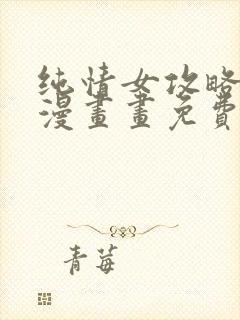 纯情女攻略
漫畫畫免費
青莓